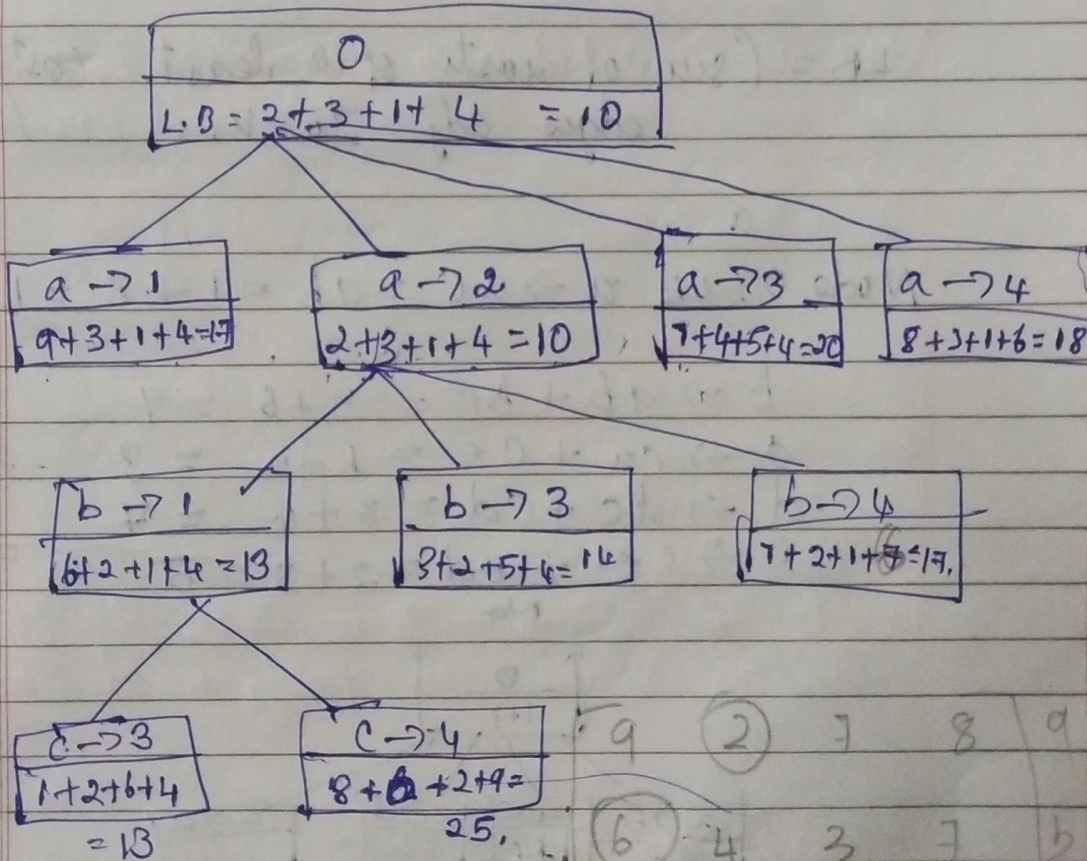 0
L.B = 2+3+1+4 = 10
a → 1
9+3+1+4=17
a → 2
2+3+1+4 = 10
a → 3
7+4+5+4=20
a → 4
8+3+1+6=18
b → 1
6+2+1+4 = 13
b → 3
3+2+5+4= 14
b → 4
7+2+1+7=17.
c → 3
1+2+6+4
= 13
c → 4
8+6+2+9=
25.
9 2 7 8 a
6 4 3 7 b